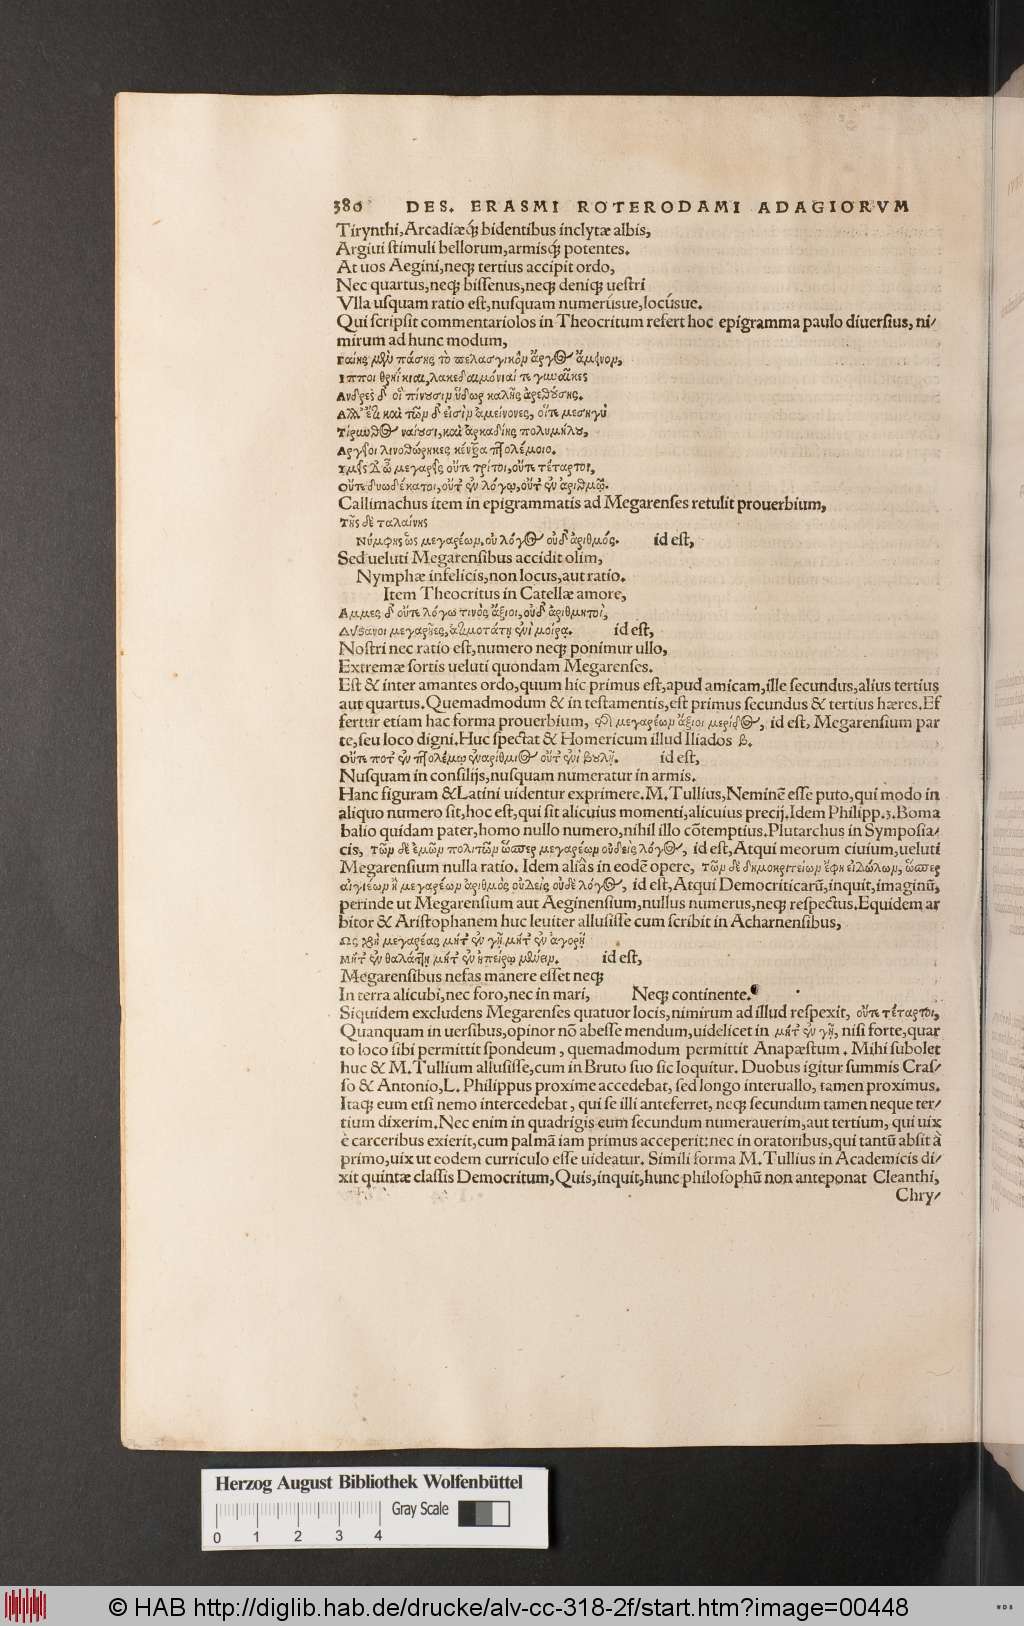 380 DES. ERASMI ROTERODAMI ADAGIORVM
Tirynthi, Arcadiæq; bidentibus inclytæ albis,
Argiui stimuli bellorum, armisq; potentes.
At uos Aegini, neq; tertius accipit ordo,
Nec quartus, neq; bissenus, neq; deniq; uestri
Vlla usquam ratio est, nusquam numerúsue, locúsue.
Qui scripsit commentariolos in Theocritum refert hoc epigramma paulo diuersius, ni/
mirum ad hunc modum,
Γαίης μὲν πάσης τὸ πελασγικὸν ἄργος ἄμεινον,
Ιπποι θρηΐκιαι, λακεδαιμόνιαί τε γυναῖκες
Ανδρες δ' οἳ πίνουσιν ὕδωρ καλῆς ἀρεθούσης.
Αλλ' ἔτι καὶ τῶν δ' εἰσὶν ἀμείνονες, οἵτε μεσηγὺ
Τίρυνθος ναίουσι, καὶ ἀρκαδίης πολυμήλου,
Αργεῖοι λινοθώρηκες κέντρα πτολέμοιο.
Υμεῖς δ' ὦ μεγαρεῖς οὔτε τρίτοι, οὔτε τέταρτοι,
Οὔτε δυωδέκατοι, οὔτ' ἐν λόγῳ, οὔτ' ἐν ἀριθμῷ.
Callimachus item in epigrammatis ad Megarenses retulit prouerbium,
Τῆς δὲ ταλαίνης
Νύμφης ὡς μεγαρέων, οὐ λόγος οὐδ' ἀριθμός. id est,
Sed ueluti Megarensibus accidit olim,
Nymphæ infelicis, non locus, aut ratio.
Item Theocritus in Catellæ amore,
Αμμες δ' οὔτε λόγω τινὸς ἄξιοι, οὐδ' ἀριθμητοί,
Δύςανοι μεγαρῆες, ἀτιμοτάτῃ ἐνὶ μοίρᾳ. id est,
Nostri nec ratio est, numero neq; ponimur ullo,
Extremæ sortis ueluti quondam Megarenses.
Est & inter amantes ordo, quum hic primus est, apud amicam, ille secundus, alius tertius
aut quartus. Quemadmodum & in testamentis, est primus secundus & tertius hæres. Ef
fertur etiam hac forma prouerbium, οἱ μεγαρέων ἄξιοι μερίδος, id est, Megarensium par
te, seu loco digni. Huc spectat & Homericum illud Iliados β.
Οὔτε ποτ' ἐν πτολέμῳ ἐναρίθμιος οὔτ' ἐνὶ βουλῇ. id est,
Nusquam in consilijs, nusquam numeratur in armis.
Hanc figuram & Latini uidentur exprimere. M. Tullius, Neminẽ esse puto, qui modo in
aliquo numero sit, hoc est, qui sit alicuius momenti, alicuius precij. Idem Philipp. 3. Boma
balio quidam pater, homo nullo numero, nihil illo cõtemptius. Plutarchus in Symposia/
cis, τῶν δὲ ἐμῶν πολιτῶν ὥσπερ μεγαρέων οὐδεὶς λόγος, id est, Atqui meorum ciuium, ueluti
Megarensium nulla ratio. Idem aliâs in eodẽ opere, τῶν δὲ δημοκριτείων ἔφη εἰδώλων, ὥσπερ
αἰγιέων ἢ μεγαρέων ἀριθμὸς οὐδεὶς οὐδὲ λόγος, id est, Atqui Democriticarũ, inquit, imaginũ,
perinde ut Megarensium aut Aeginensium, nullus numerus, neq; respectus. Equidem ar
bitor & Aristophanem huc leuiter allusisse cum scribit in Acharnensibus,
Ως χρὴ μεγαρέας μήτ' ἐν γῇ μήτ' ἐν ἀγορῇ
Μήτ' ἐν θαλάττῃ μήτ' ἐν ἠπείρῳ μένειν. id est,
Megarensibus nefas manere esset neq;
In terra alicubi, nec foro, nec in mari, Neq; continente.
Siquidem excludens Megarenses quatuor locis, nimirum ad illud respexit, οὔτε τέταρτοι,
Quanquam in uersibus, opinor nõ abesse mendum, uidelicet in μήτ' ἐν γῇ, nisi forte, quar
to loco sibi permittit spondeum, quemadmodum permittit Anapæstum. Mihi subolet
huc & M. Tullium allusisse, cum in Bruto suo sic loquitur. Duobus igitur summis Cras/
so & Antonio, L. Philippus proxime accedebat, sed longo interuallo, tamen proximus.
Itaq; eum etsi nemo intercedebat, qui se illi anteferret, neq; secundum tamen neque ter/
tium dixerim. Nec enim in quadrigis eum secundum numerauerim, aut tertium, qui uix
è carceribus exierit, cum palmã iam primus acceperit: nec in oratoribus, qui tantũ absit à
primo, uix ut eodem curriculo esse uideatur. Simili forma M. Tullius in Academicis di/
xit quintæ classis Democritum, Quis, inquit, hunc philosophũ non anteponat Cleanthi,
Chry/
Herzog August Bibliothek Wolfenbüttel
Gray Scale
0 1 2 3 4
© HAB http://diglib.hab.de/drucke/alv-cc-318-2f/start.htm?image=00448